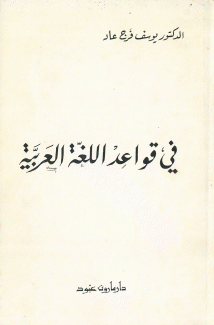 الدكتور يوسف فرج عاد
في قواعد اللغة العربية
دار مارون عبود